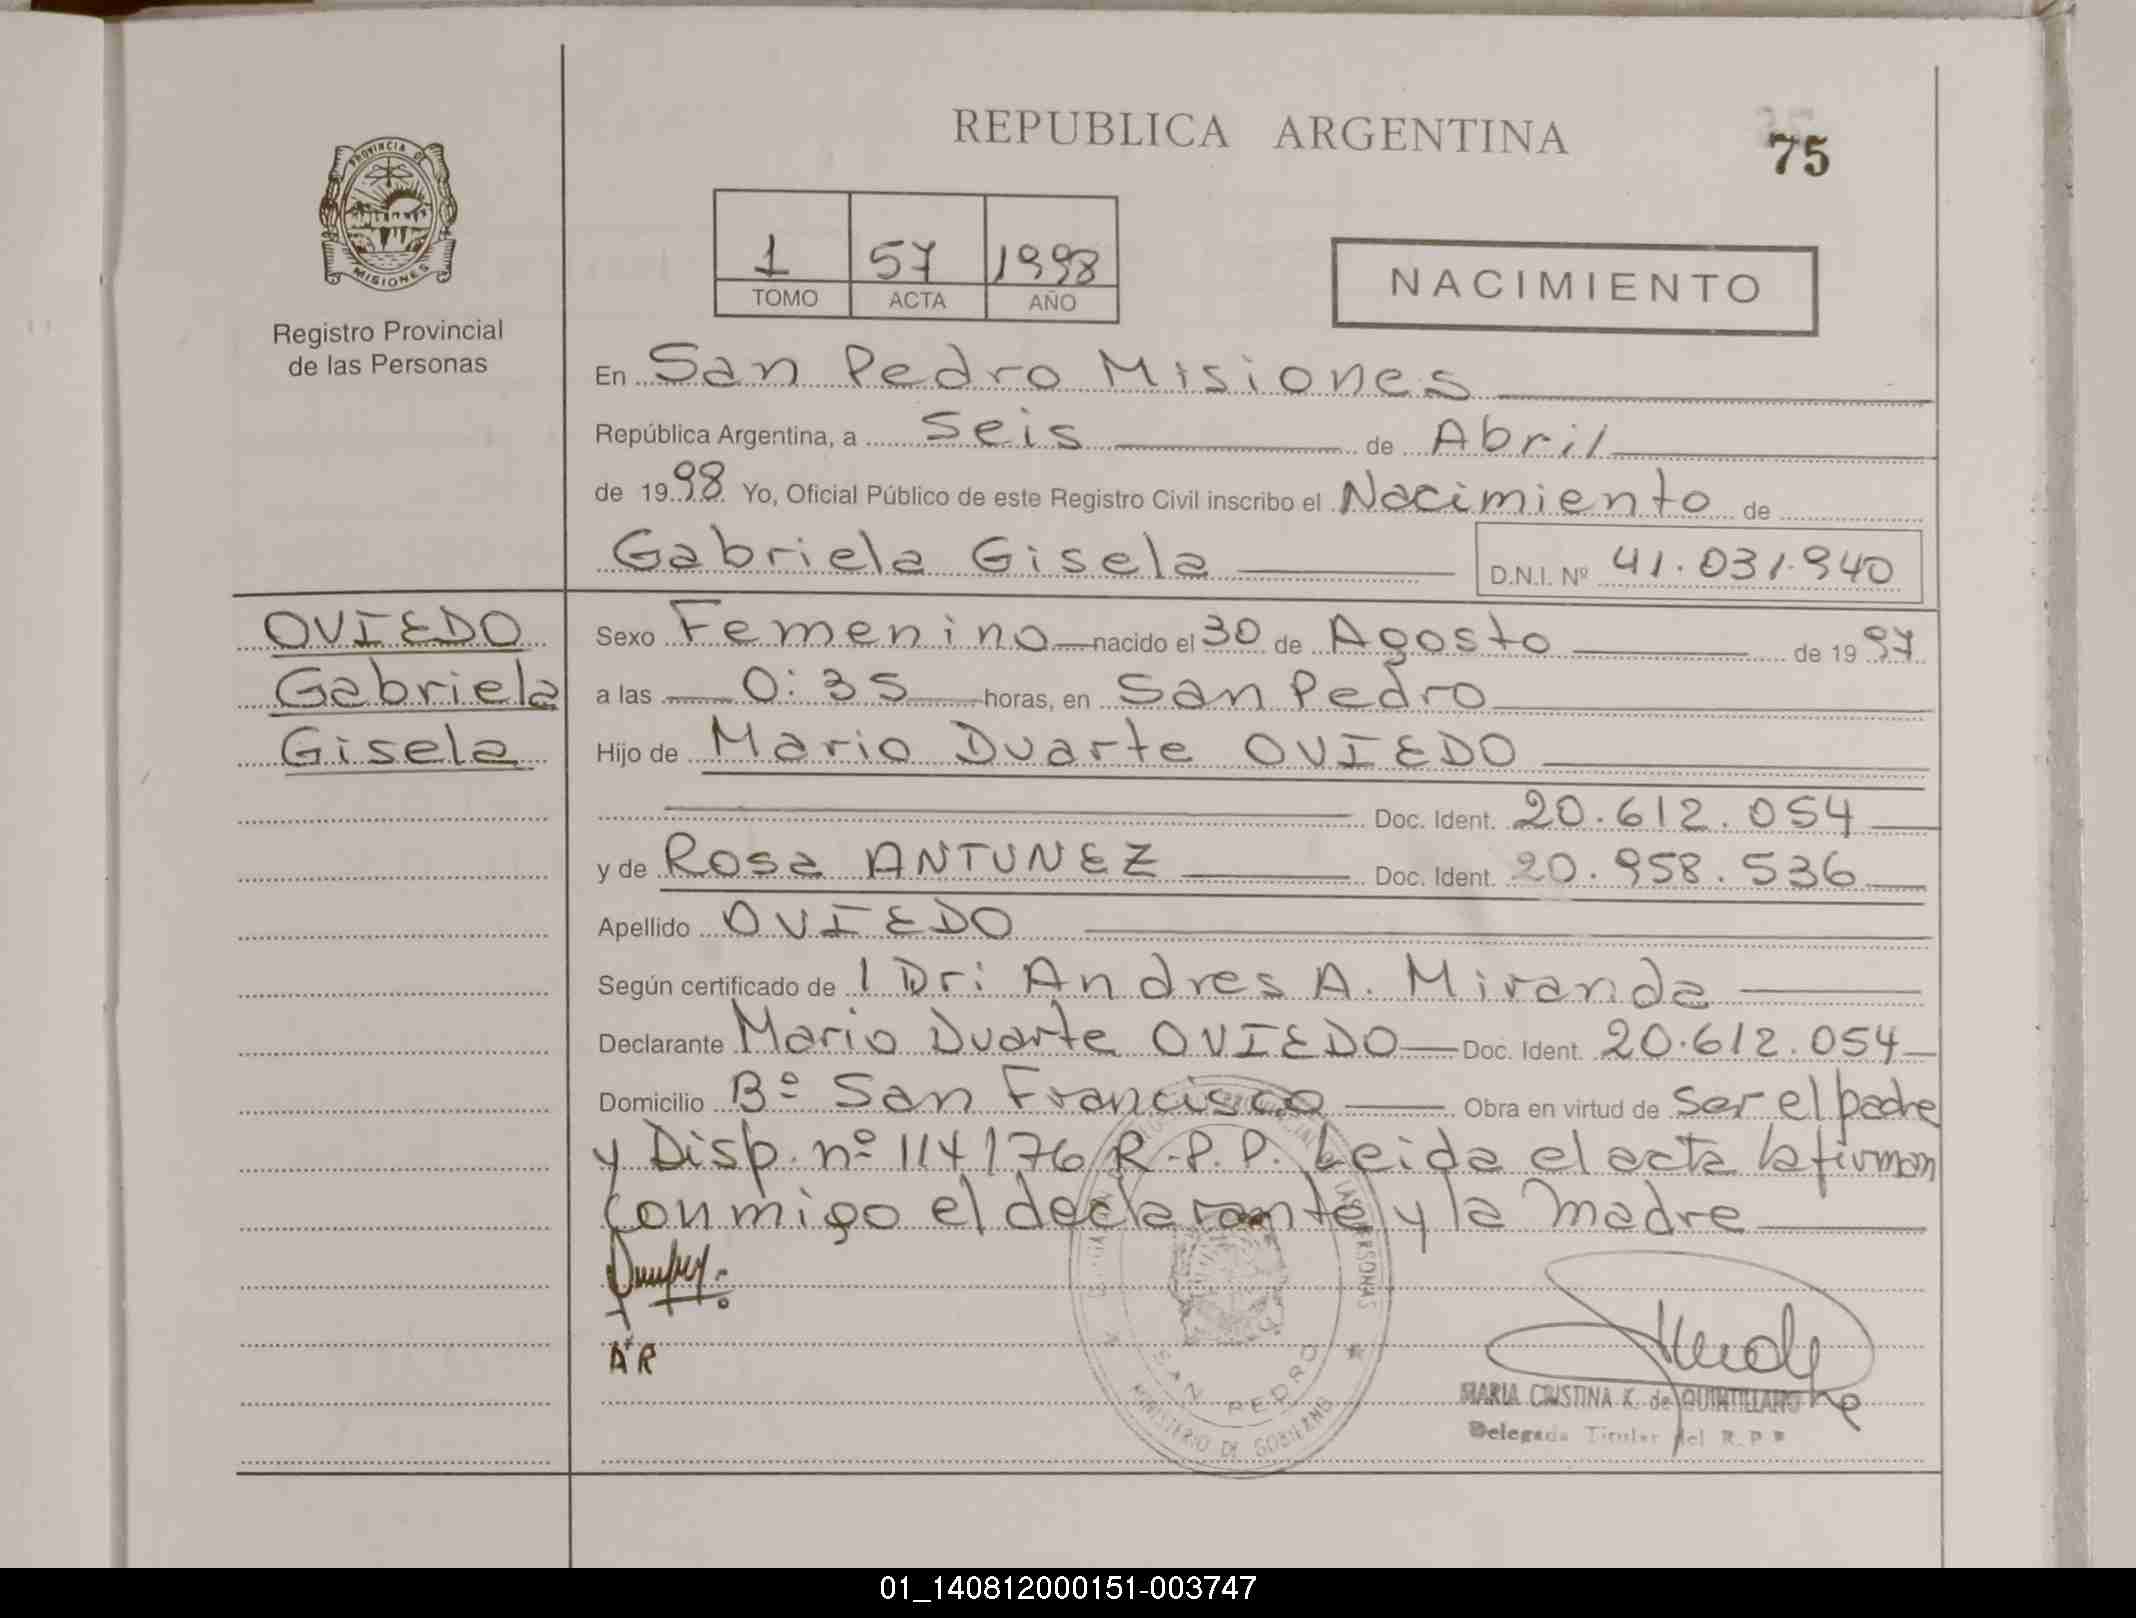 REPUBLICA ARGENTINA
75
PROVINCIA DE
MISIONES
Registro Provincial
de las Personas
1 57 1998
TOMO ACTA AÑO
NACIMIENTO
En San Pedro Misiones
República Argentina, a Seis de Abril
de 1998 Yo, Oficial Público de este Registro Civil inscribo el Nacimiento de
Gabriela Gisela D.N.I. Nº 41.031.940
OVIEDO
Gabriela
Gisela
Sexo Femenino nacido el 30 de Agosto de 1997
a las 0:35 horas, en San Pedro
Hijo de Mario Duarte OVIEDO
Doc. Ident. 20.612.054
y de Rosa ANTUNEZ Doc. Ident. 20.958.536
Apellido OVIEDO
Según certificado de l Dr: Andres A. Miranda
Declarante Mario Duarte OVIEDO Doc. Ident. 20.612.054
Domicilio Bº San Francisco Obra en virtud de ser el padre
y Disp. nº 114/76 R.P.P. Leida el acta la firman
conmigo el declarante y la madre
AR
SAN PEDRO
MINISTERIO DE GOBIERNO
MARIA CRISTINA K. de QUINTILLANO
Delegada Titular del R.P.P
01_140812000151-003747